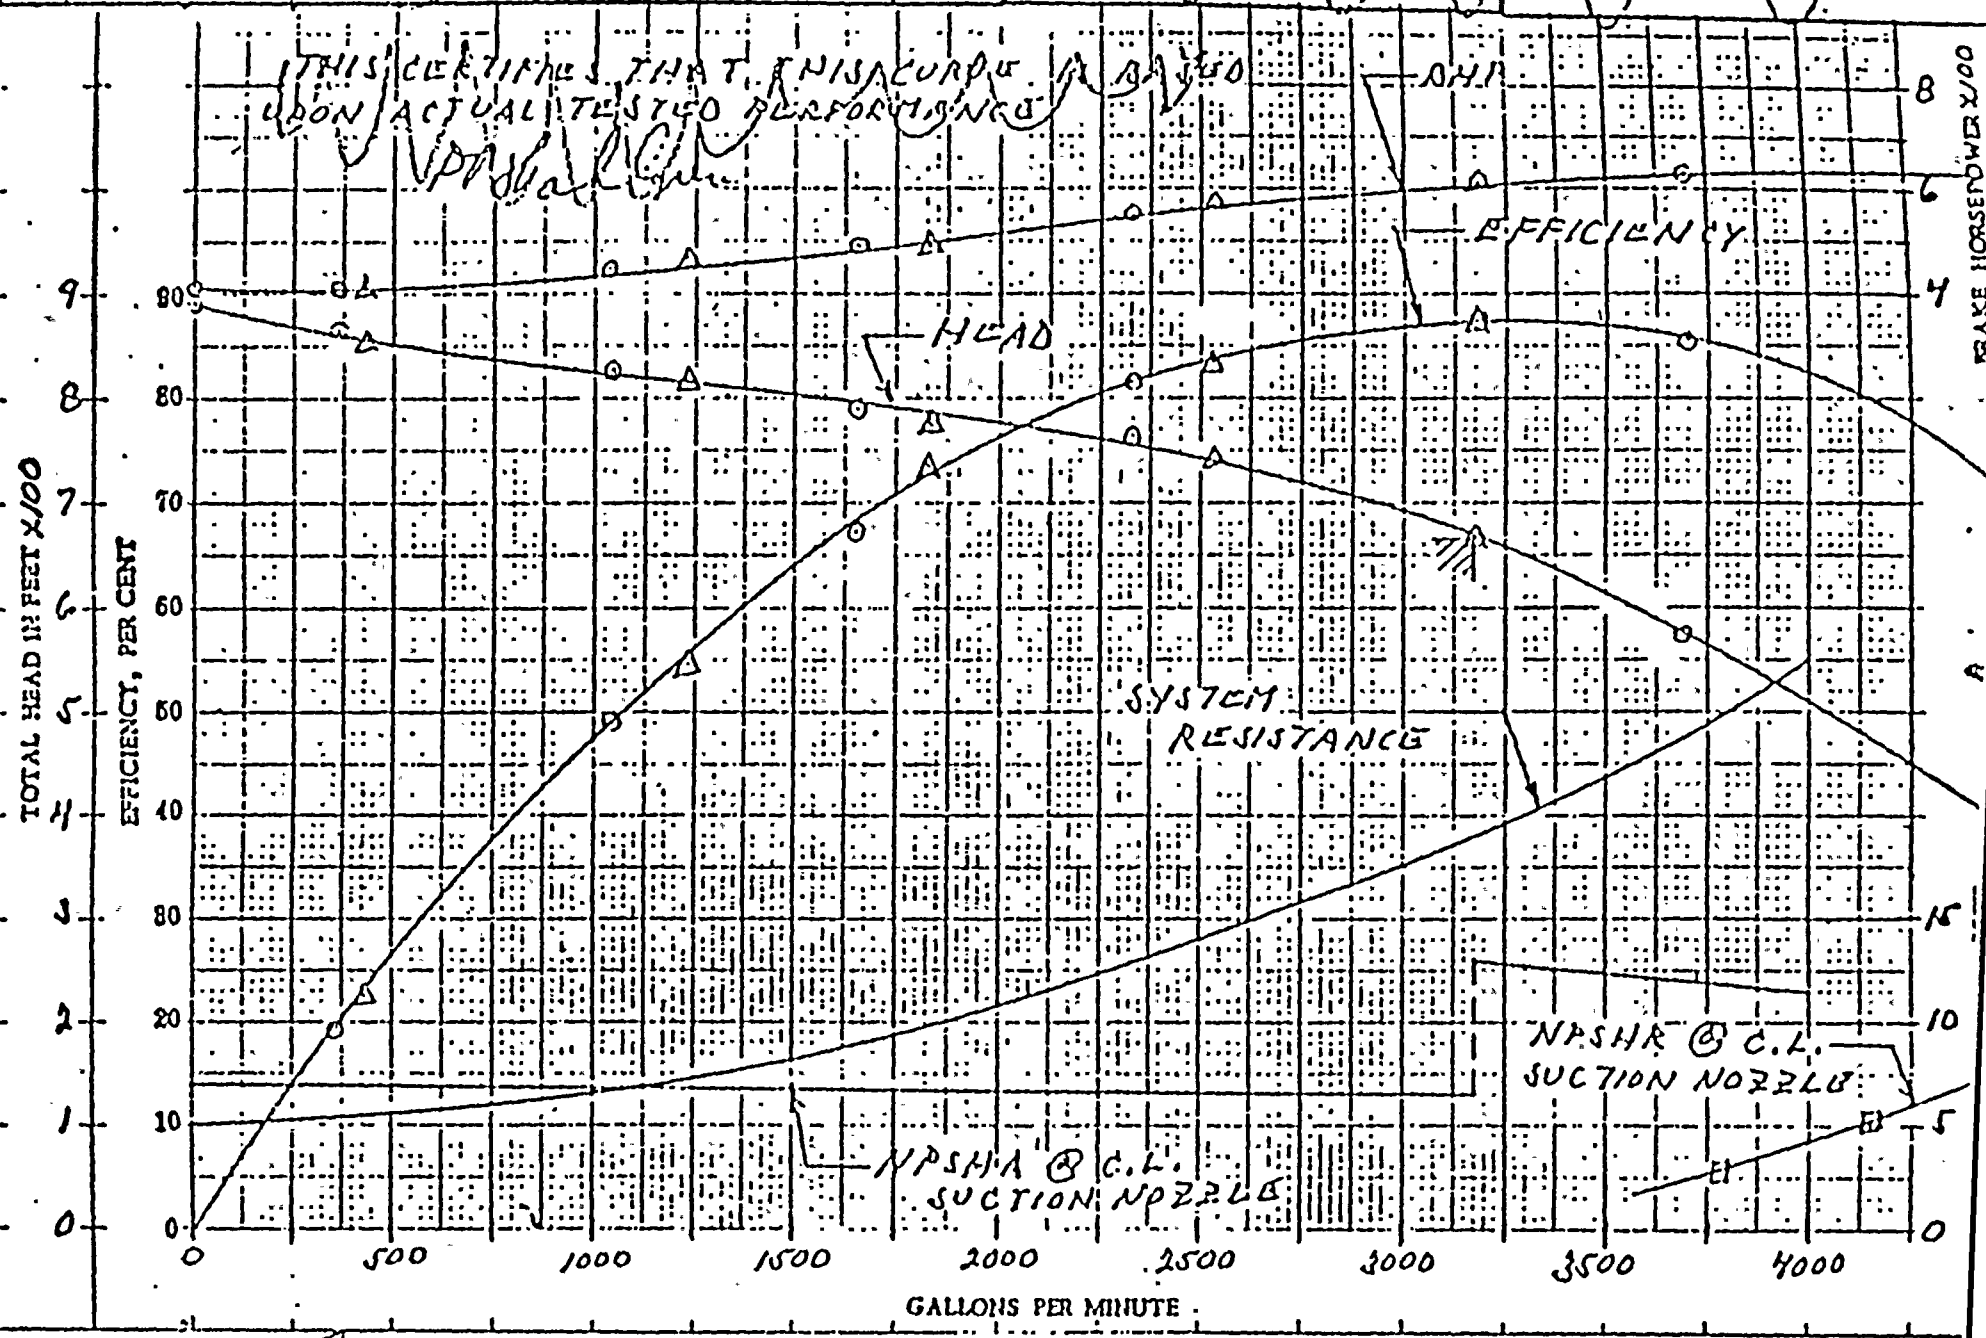 THIS CERTIFIES THAT THIS CURVE IS BASED
UPON ACTUAL TESTED PERFORMANCE
BHP
EFFICIENCY
HEAD
SYSTEM
RESISTANCE
NPSHR @ C.L.
SUCTION NOZZLE
NPSHA @ C.L.
SUCTION NOZZLE
TOTAL HEAD IN FEET X/00
9
8
7
6
5
4
3
2
1
0
EFFICIENCY, PER CENT
90
80
70
60
50
40
30
20
10
0
8
6
4
15
10
5
0
HORSEPOWER X/00
0 500 1000 1500 2000 2500 3000 3500 4000
GALLONS PER MINUTE